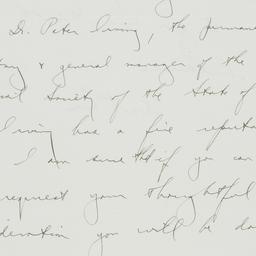 Dr. Peter Irving, the perman
tary & general manager of the
cal Society of the State of
Irving has a fine reputa
I am sure that if you can
request your thoughtful
ideration you will be do